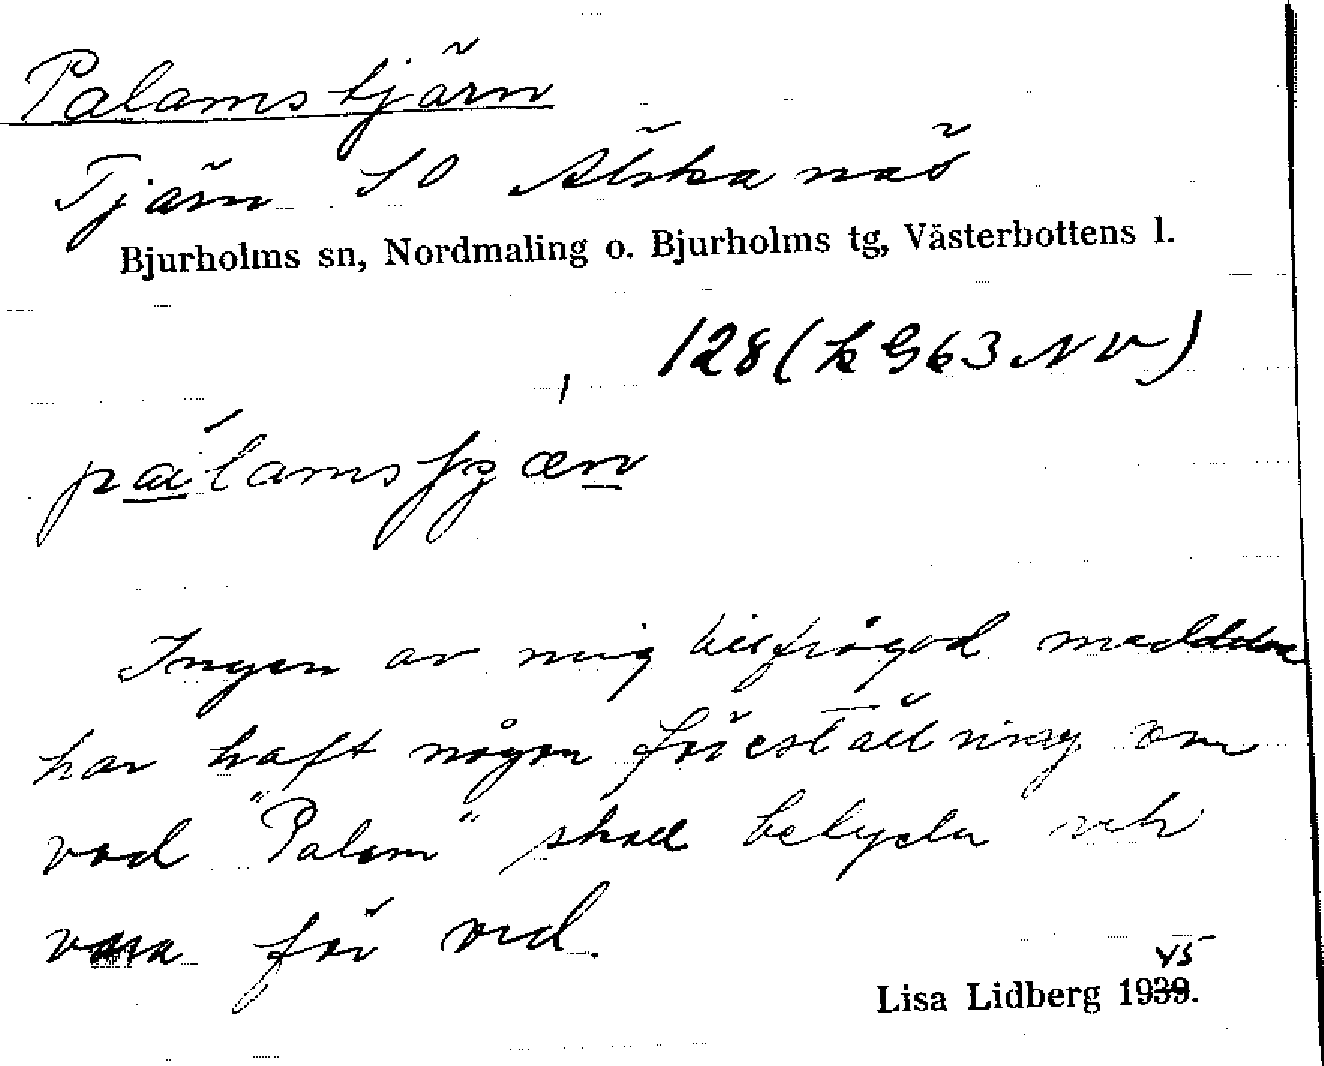 Palamstjärn
Tjärn SO Älskanäs
Bjurholms sn, Nordmaling o. Bjurholms tg, Västerbottens l.
128 (k G63 NV)
pálams
Ingen av mig tillfrågad
har haft någon föreställning om
vad "Palam" skall betyda och
vara för ord.
45
Lisa Lidberg 1939.